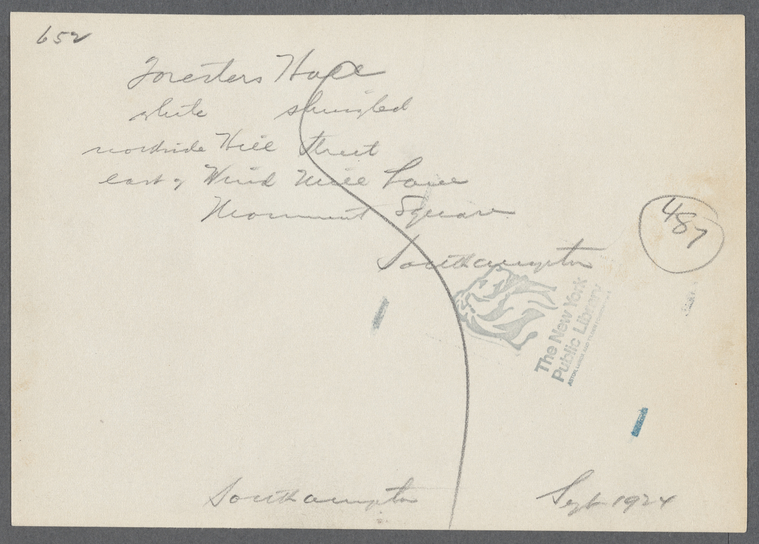 652
Foresters Hall
white shingled
northside Hill Street
east of Wind Mill Lane
Monument Square
487
Southampton
The New York
Public Library
Southampton Sept 1924